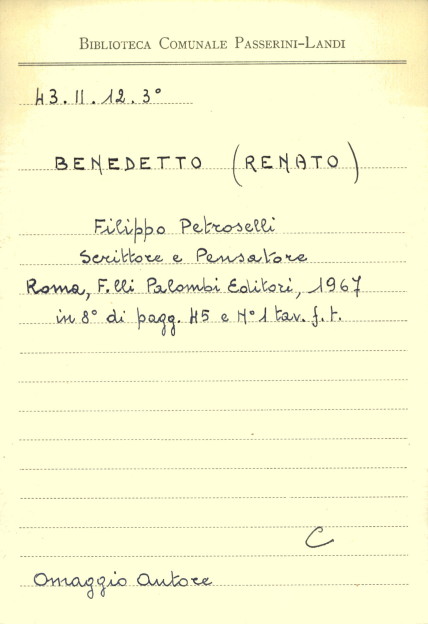 BIBLIOTECA COMUNALE PASSERINI-LANDI
43.II.12.3°
BENEDETTO (RENATO)
Filippo Petroselli
Scrittore e Pensatore
Roma, F.lli Palombi Editori, 1967
in 8° di pagg. 45 e N° 1 tav. f.t.
C
Omaggio Autore